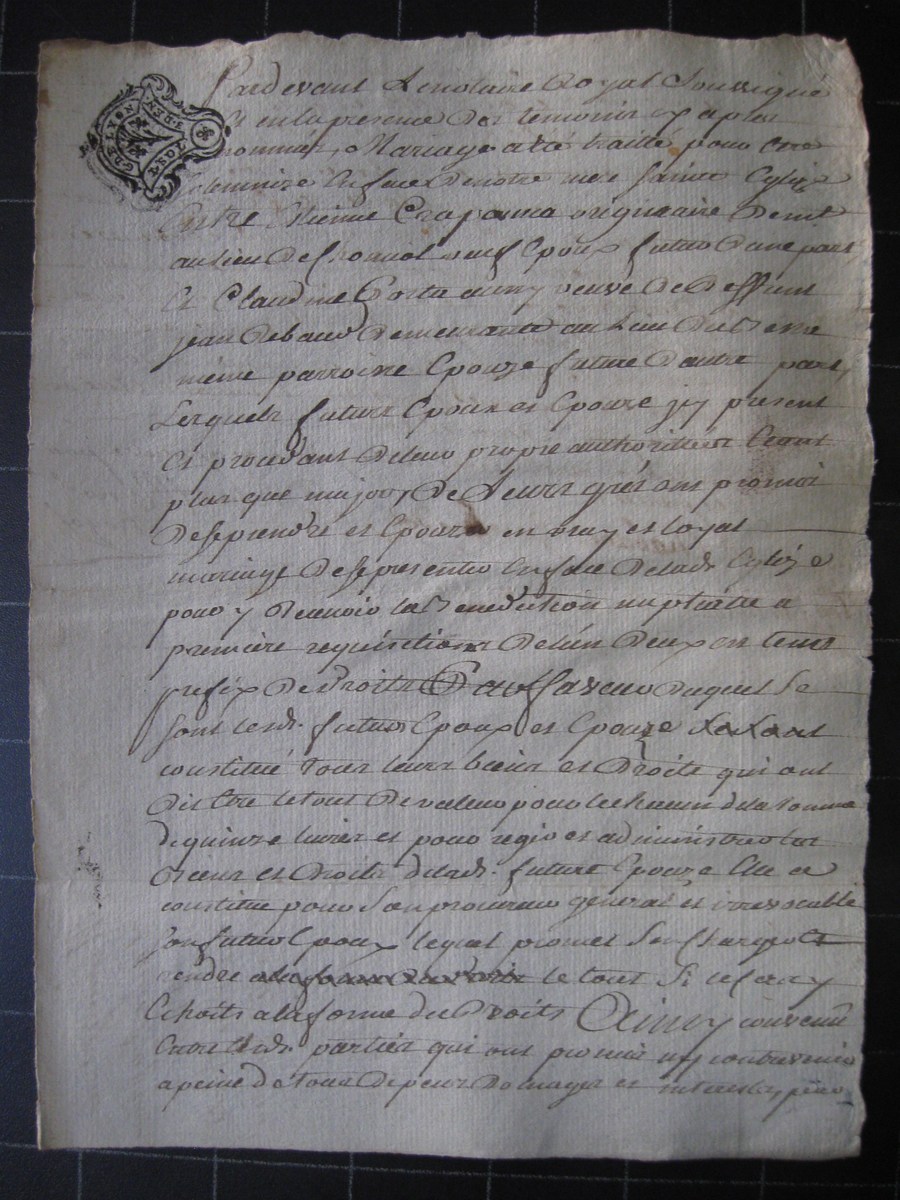 G. DE LYON
Pardevant Le notaire Royal Soussigné
Et en la presence Des temoins cy apres
nommés, Mariage a eté traitté pour etre
Solemnizé En face De notre mere Sainte Eglize
Entre Etienne Craponna originaire De
au lieu De veuf Epoux futur D'une part
Et Claudine veuve De Deffunt
jean Debaud Demeurante au Lieu De
même parroisse Epouze future D'autre part,
Lesquels futurs Epoux et Epouze jcy present
Et procedant De leur propre authorité Etant
plus que majeurs De Leurs grés ont promis
De se prendre et Epouzer en vray et loyal
mariage De se presenter En face De lad. Eglize
pour y Recevoir la Benediction nuptialle a
premiere requisitions De l'un Deux en tems
prefix De Droits En faveur Duquel Se
Sont lesd. futurs Epoux et Epouze
constitué Tous leurs biens et Droits qui ont
Dit Etre le tout De valeur pour le chacun de la Somme
de quinze livres et pour regir et administrer les
Biens et Droits de lad. future Epouze Elle ce
constitue pour Son procureur general et irrevocable
Son futur Epoux lequel promet S'en charger et
rendre le tout Si le cas y
Echoits a la forme du Droits Ainsy convenu
Entre lesd. parties qui ont promis n'y contrevenir
a peine de Tous Depens Domages et interests, pour